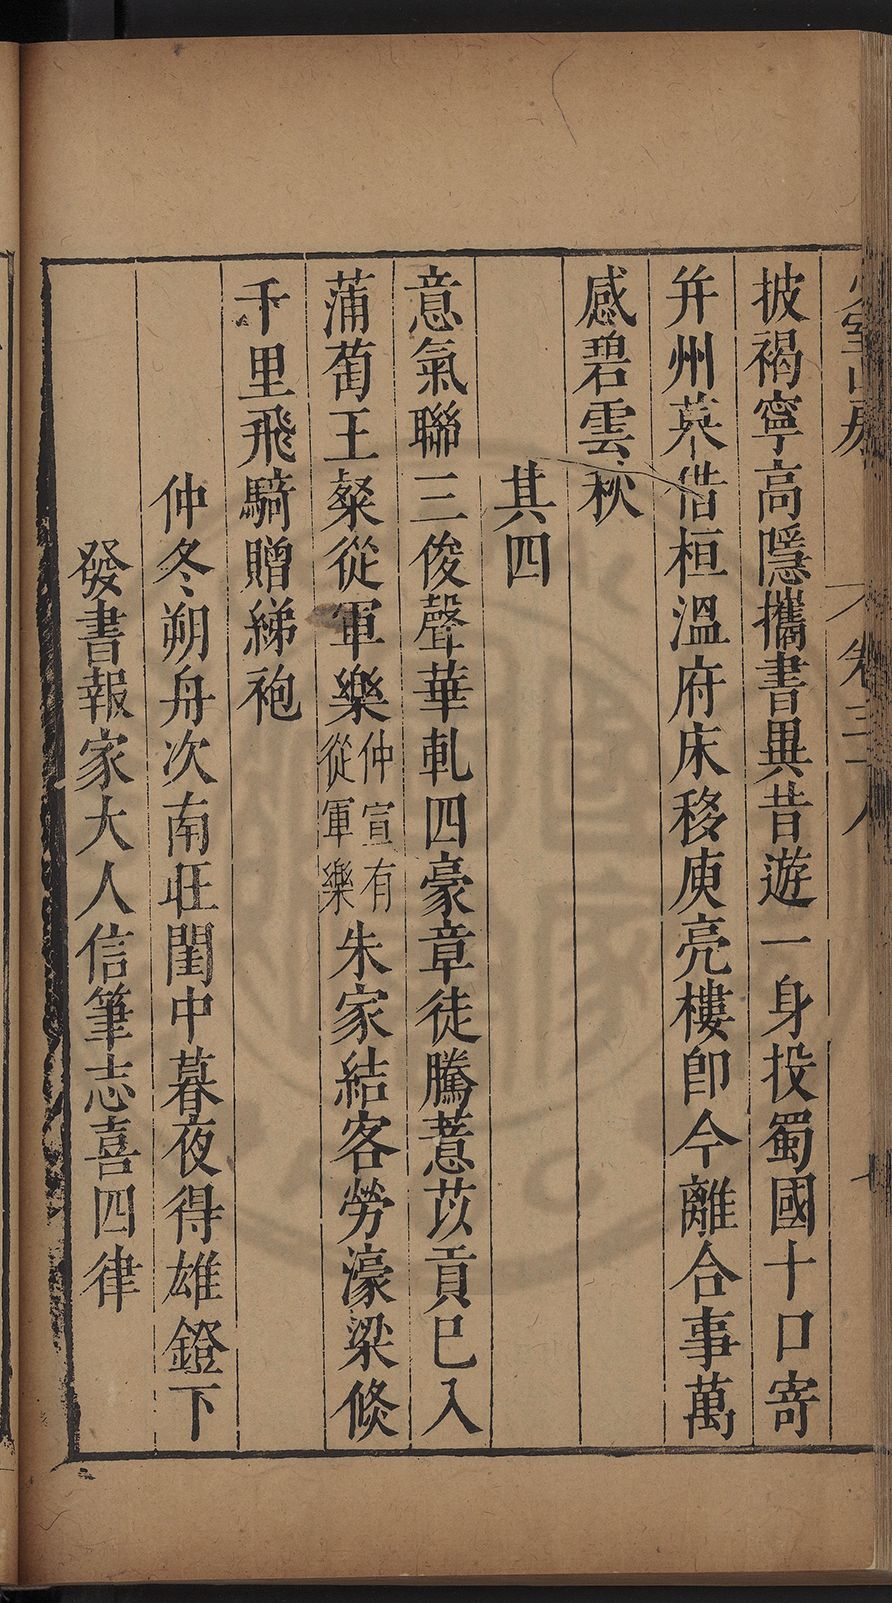 披褐寧高隱攜書異昔遊一身投蜀國十口寄
并州萊偕桓溫府床移庾亮樓卽今離合事萬
感碧雲秋
其四
意氣聯三俊聲華軋四豪章徒騰薏苡貢巳入
蒲萄王粲從軍樂仲宣有從軍樂朱家結客勞濠梁倐
千里飛騎贈綈袍
仲冬朔舟次南旺閨中暮夜得雄鐙下
發書報家大人信筆志喜四律